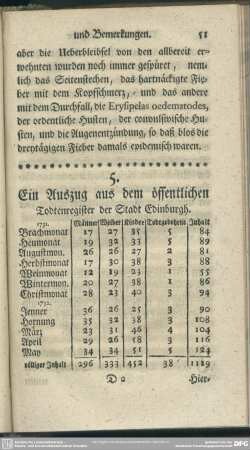 und Bemerkungen. 51
aber die Ueberbleibsel von den allbereit er-
wehnten wurden noch immer gespüret, nem-
lich das Seitenstechen, das hartnäckigte Fie-
ber mit dem Kopfschmerz, und das andere
mit dem Durchfall, die Erysipelas oedematodes,
der ordentliche Husten, der convulsivische Hu-
sten, und die Augenentzündung, so daß blos die
dreytägigen Fieber damals epidemisch waren.
5.
Ein Auszug aus dem öffentlichen
Todtenregister der Stadt Edinburgh.
1731. Männer Weiber Kinder Todtgebohrn Inhalt
Brachmonat 17 27 35 5 84
Heumonat 19 32 33 5 89
Augustmon. 26 26 27 2 81
Herbstmonat 17 30 38 3 88
Weinmonat 12 19 23 1 55
Wintermon. 20 27 38 1 86
Christmonat 28 23 40 3 94
1732.
Jenner 36 26 25 3 90
Hornung 35 32 38 3 108
März 23 31 46 4 104
April 29 26 58 3 116
May 34 34 51 5 124
völliger Inhalt 296 333 452 38 1119
D 2 Hier-